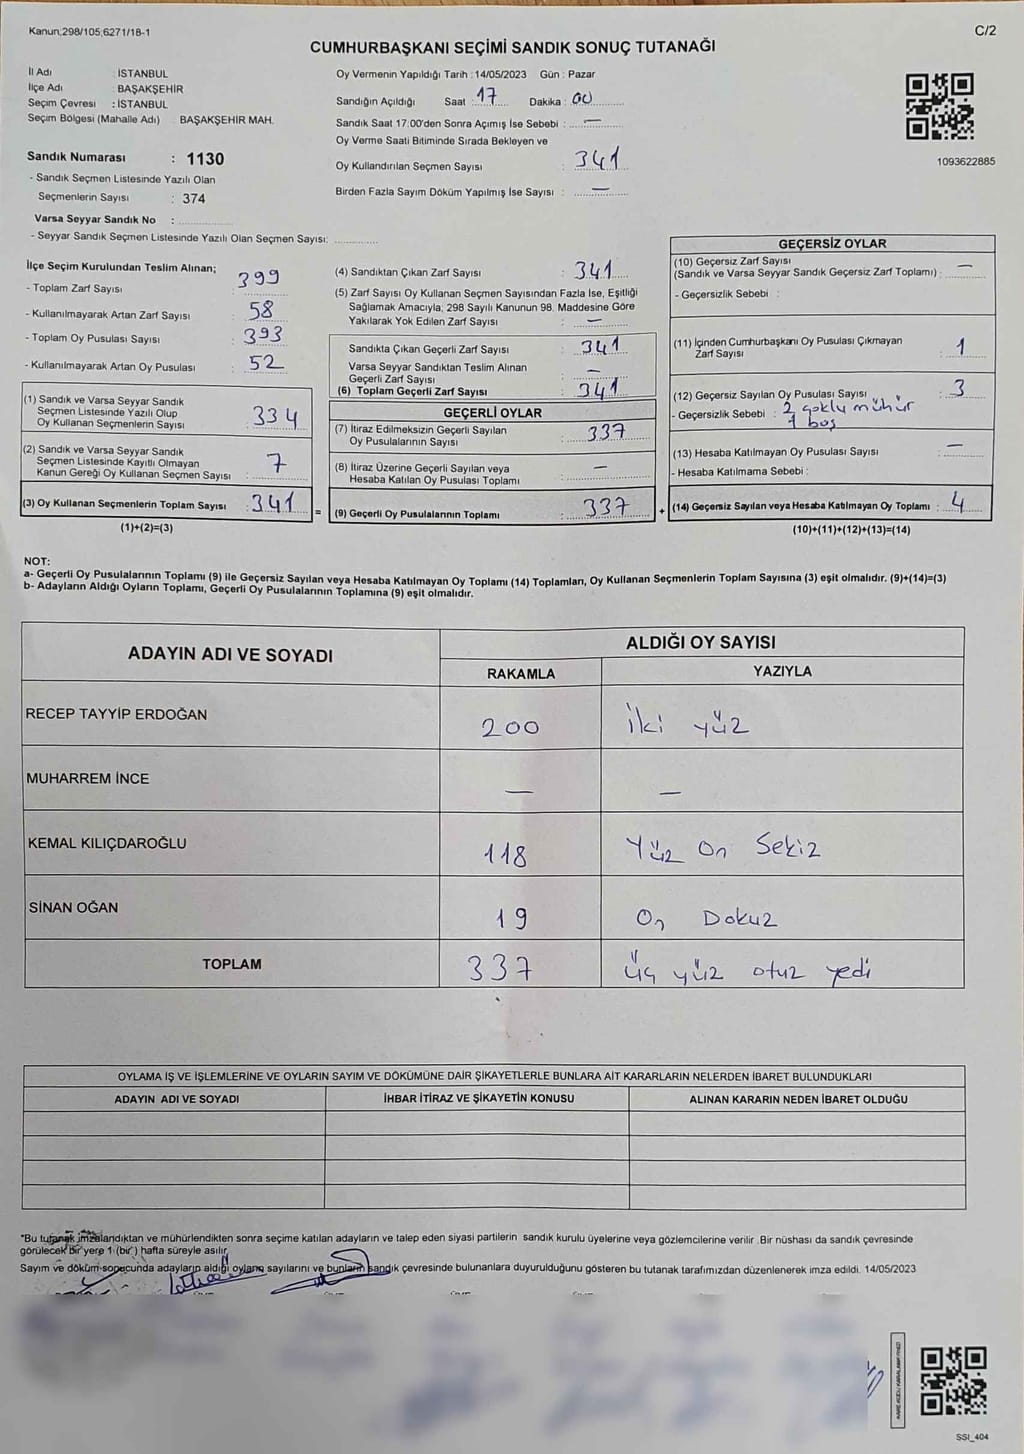 Kanun;298/105;6271/18-1
C/2
CUMHURBAŞKANI SEÇİMİ SANDIK SONUÇ TUTANAĞI
İl Adı : İSTANBUL
İlçe Adı : BAŞAKŞEHİR
Seçim Çevresi : İSTANBUL
Seçim Bölgesi (Mahalle Adı) : BAŞAKŞEHİR MAH.
Sandık Numarası : 1130
- Sandık Seçmen Listesinde Yazılı Olan
Seçmenlerin Sayısı : 374
Varsa Seyyar Sandık No :
- Seyyar Sandık Seçmen Listesinde Yazılı Olan Seçmen Sayısı:
Oy Vermenin Yapıldığı Tarih : 14/05/2023 Gün : Pazar
Sandığın Açıldığı Saat : 17 Dakika : 00
Sandık Saat 17:00'den Sonra Açımış İse Sebebi : —
Oy Verme Saati Bitiminde Sırada Bekleyen ve
Oy Kullandırılan Seçmen Sayısı : 341
Birden Fazla Sayım Döküm Yapılmış İse Sayısı : —
1093622885
İlçe Seçim Kurulundan Teslim Alınan;
- Toplam Zarf Sayısı : 399
- Kullanılmayarak Artan Zarf Sayısı : 58
- Toplam Oy Pusulası Sayısı : 393
- Kullanılmayarak Artan Oy Pusulası : 52
(1) Sandık ve Varsa Seyyar Sandık
Seçmen Listesinde Yazılı Olup
Oy Kullanan Seçmenlerin Sayısı : 334
(2) Sandık ve Varsa Seyyar Sandık
Seçmen Listesinde Kayıtlı Olmayan
Kanun Gereği Oy Kullanan Seçmen Sayısı : 7
(3) Oy Kullanan Seçmenlerin Toplam Sayısı : 341
(1)+(2)=(3)
=
(4) Sandıktan Çıkan Zarf Sayısı : 341
(5) Zarf Sayısı Oy Kullanan Seçmen Sayısından Fazla İse, Eşitliği
Sağlamak Amacıyla; 298 Sayılı Kanunun 98. Maddesine Göre
Yakılarak Yok Edilen Zarf Sayısı : —
Sandıkta Çıkan Geçerli Zarf Sayısı : 341
Varsa Seyyar Sandıktan Teslim Alınan
Geçerli Zarf Sayısı : —
(6) Toplam Geçerli Zarf Sayısı : 341
GEÇERLİ OYLAR
(7) İtiraz Edilmeksizin Geçerli Sayılan
Oy Pusulalarının Sayısı : 337
(8) İtiraz Üzerine Geçerli Sayılan veya
Hesaba Katılan Oy Pusulası Toplamı : —
(9) Geçerli Oy Pusulalarının Toplamı : 337
+
GEÇERSİZ OYLAR
(10) Geçersiz Zarf Sayısı
(Sandık ve Varsa Seyyar Sandık Geçersiz Zarf Toplamı) : —
- Geçersizlik Sebebi :
(11) İçinden Cumhurbaşkanı Oy Pusulası Çıkmayan
Zarf Sayısı : 1
(12) Geçersiz Sayılan Oy Pusulası Sayısı : 3
- Geçersizlik Sebebi : 2 çoklu mühür
1 boş
(13) Hesaba Katılmayan Oy Pusulası Sayısı : —
- Hesaba Katılmama Sebebi :
(14) Geçersiz Sayılan veya Hesaba Katılmayan Oy Toplamı : 4
(10)+(11)+(12)+(13)=(14)
NOT:
a- Geçerli Oy Pusulalarının Toplamı (9) ile Geçersiz Sayılan veya Hesaba Katılmayan Oy Toplamı (14) Toplamları, Oy Kullanan Seçmenlerin Toplam Sayısına (3) eşit olmalıdır. (9)+(14)=(3)
b- Adayların Aldığı Oyların Toplamı, Geçerli Oy Pusulalarının Toplamına (9) eşit olmalıdır.
ADAYIN ADI VE SOYADI
ALDIĞI OY SAYISI
RAKAMLA YAZIYLA
RECEP TAYYİP ERDOĞAN 200 İki yüz
MUHARREM İNCE — —
KEMAL KILIÇDAROĞLU 118 Yüz On Sekiz
SİNAN OĞAN 19 On Dokuz
TOPLAM 337 Üç yüz otuz yedi
OYLAMA İŞ VE İŞLEMLERİNE VE OYLARIN SAYIM VE DÖKÜMÜNE DAİR ŞİKAYETLERLE BUNLARA AİT KARARLARIN NELERDEN İBARET BULUNDUKLARI
ADAYIN ADI VE SOYADI İHBAR İTİRAZ VE ŞİKAYETİN KONUSU ALINAN KARARIN NEDEN İBARET OLDUĞU
"Bu tutanak imzalandıktan ve mühürlendikten sonra seçime katılan adayların ve talep eden siyasi partilerin sandık kurulu üyelerine veya gözlemcilerine verilir .Bir nüshası da sandık çevresinde
görülecek bir yere 1 (bir ) hafta süreyle asılır.
Sayım ve döküm sonucunda adayların aldığı oyların sayılarını ve bunların sandık çevresinde bulunanlara duyurulduğunu gösteren bu tutanak tarafımızdan düzenlenerek imza edildi. 14/05/2023
SSI_404